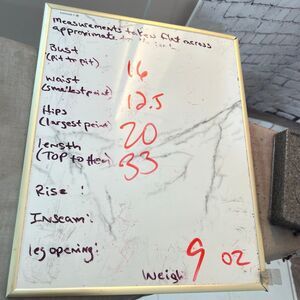 measurements taken flat across
approximate to
Bust
(pit to pit) 16
waist
(smallest point) 12.5
Hips
(largest point) 20
length
(TOP to Hem) 33
Rise :
Inseam:
leg opening:
Weigh 9 oz